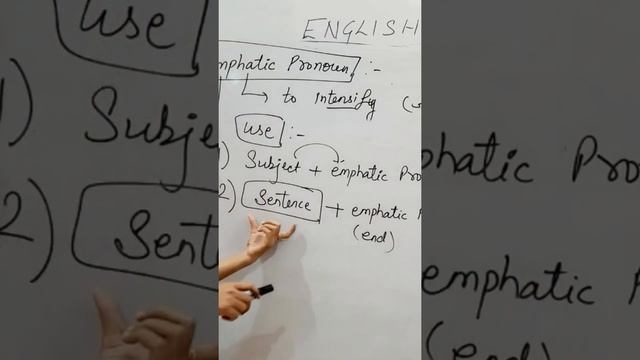 ENGLISH
mphatic Pronoun :-
→ to Intensify
use :-
1) Subject + emphatic Pro
2) Sentence + emphatic
(end)